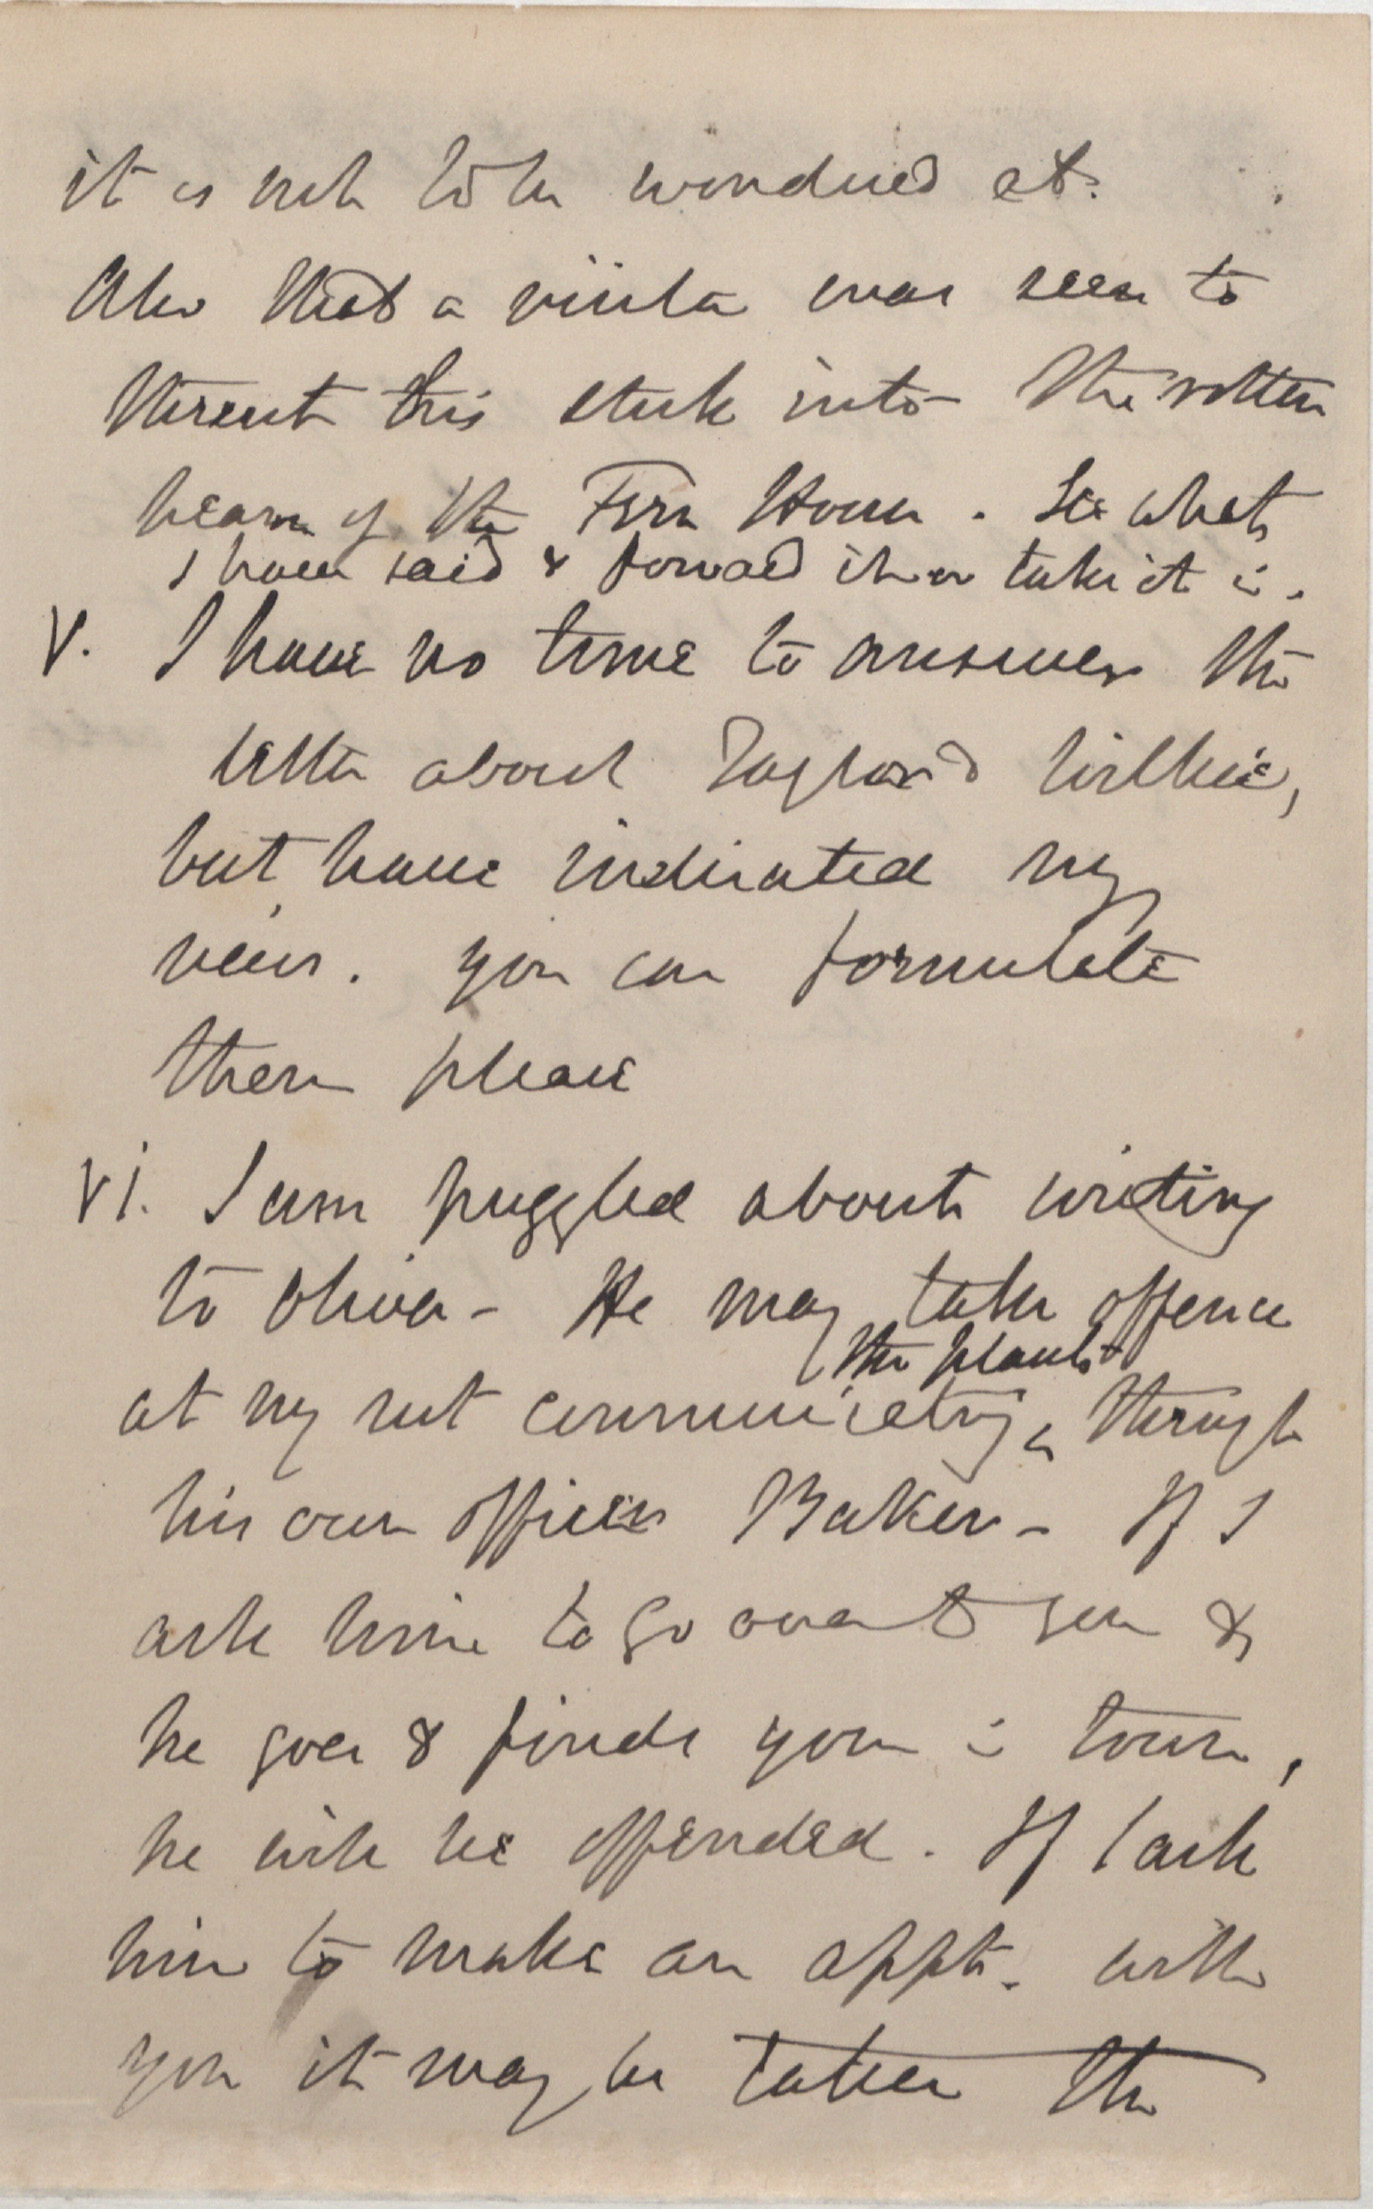 it is not to be wondered at.
Also that a visitor was seen to
thrust his stick into the rotten
beam of the Fern House. See what
I have said & forward it or take it in.
V. I have no time to answer the
letter about Taylor &
but have indicated my
views. you can formulate
them please
VI. I am puzzled about writing
to Oliver - He may take offence
at my not communicatg the plants through
his own officer Baker - If I
ask him to go over to you &
he goes & finds you in town,
he will be offended. If I ask
him to make an appt. with
you it may be taken the